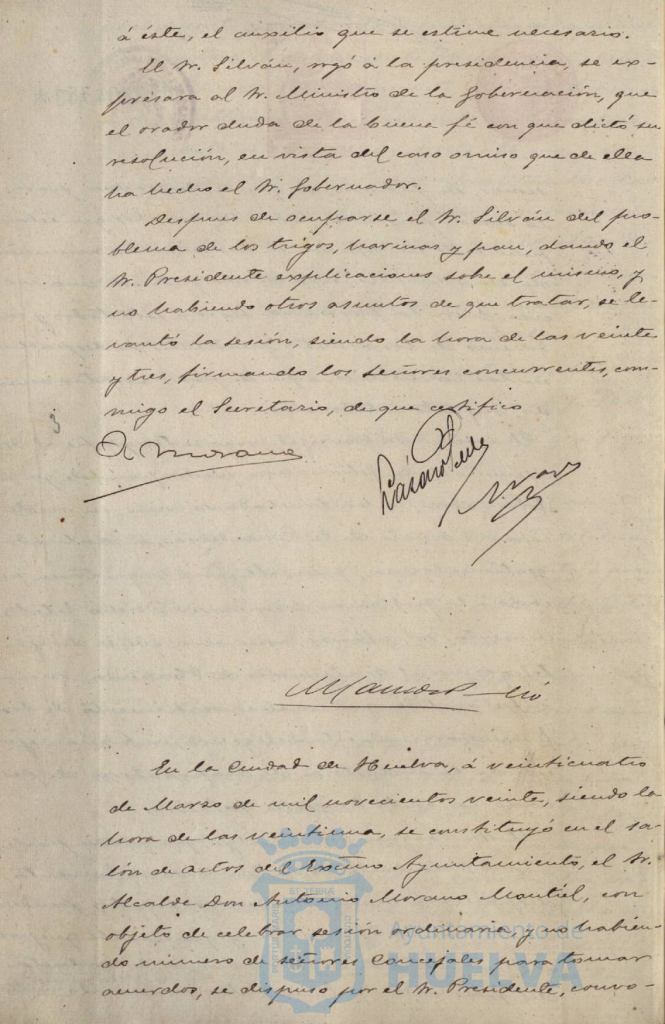 á éste, el auxilio que se estime necesario.
El Sr. Silván, rogó á la presidencia, se ex-
presara al Sr. Ministro de la Gobernación, que
el orador duda de la buena fé con que dictó su
resolución, en vista del caso omiso que de ella
ha hecho el Sr. Gobernador.
Despues de ocuparse el Sr. Silván del pro-
blema de los trigos, harinas y pan, dando el
Sr. Presidente explicaciones sobre el mismo, y
no habiendo otros asuntos de que tratar, se le-
vantó la sesión, siendo la hora de las veinte
y tres, firmando los señores concurrentes, con-
migo el Secretario, de que certifico
A. Morano
En la Ciudad de Huelva, á veinticuatro
de Marzo de mil novecientos veinte, siendo la
hora de las veintiuna, se constituyó en el sa-
lón de actos del Excmo Ayuntamiento, el Sr.
Alcalde Don Antonio Morano Montiel, con
objeto de celebrar sesión ordinaria, y no habien-
do número de señores Concejales para tomar
acuerdos, se dispuso por el Sr. Presidente, convo-
Ayuntamiento de
HUELVA